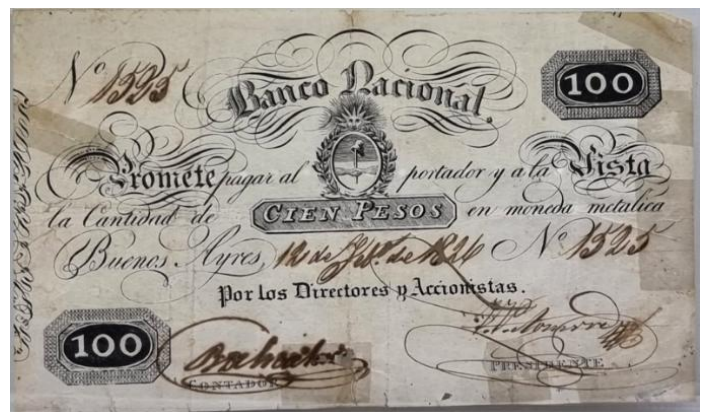 Nº 1525
100
Banco Nacional.
Promete pagar al portador y a la Vista
la Cantidad de CIEN PESOS en moneda metalica
Buenos Ayres, 12 de de 1826 Nº 1525
Por los Directores y Accionistas.
100
CONTADOR
PRESIDENTE